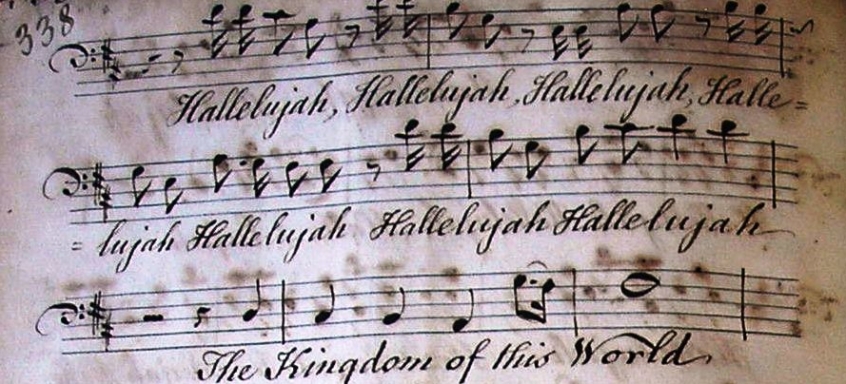 338
Hallelujah, Hallelujah, Hallelujah, Halle=
= lujah Hallelujah Hallelujah Hallelujah
The Kingdom of this World